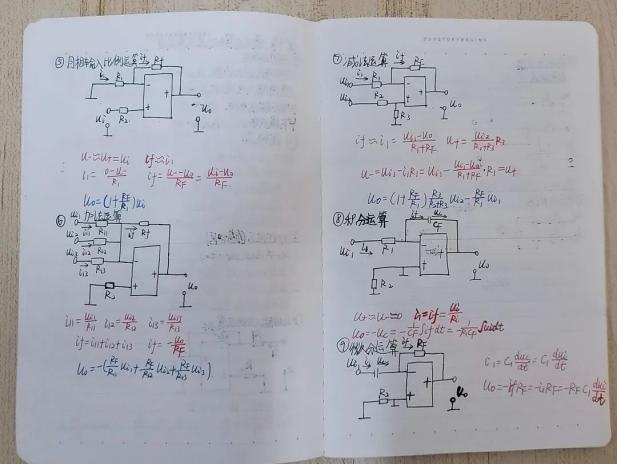 ⑤ 同相输入比例运算 if RF
i1 R1
ui R2
uo
u-≈u+=ui if≈i1
i1=0-u-/R1 if=u--uo/RF=ui-uo/RF
uo=(1+RF/R1)ui
⑥ 加法运算
ui1 i11 R11 if Rf
ui2 i12 R12
ui3 i13 R13
R2 uo
i11=ui1/R11 i12=ui2/R12 i13=ui3/R13
if=i11+i12+i13 if=-uo/RF
uo=-(RF/R11 ui1+RF/R12 ui2+RF/R13 ui3)
⑦ 减法运算 if RF
ui1 i1 R1
ui2 R2
R3 uo
if≈i1=ui1-uo/R1+RF u+=ui2/R2+R3 R3
u-=ui1-i1R1=ui1-ui1-uo/R1+RF·R1=u+
uo=(1+RF/R1)R3/R2+R3 ui2-RF/R1 ui1
⑧ 积分运算 if uc
CF
ui i1 R1
R2 uo
u+≈u-≈0 i1=if=ui/R1
uo=-uc=-1/CF∫if dt=-1/R1CF∫uidt
⑨ 微分运算 if RF
ui i1
R2 uo
i1=C1 duc/dt=C1 dui/dt
uo=-ifRF=-i1RF=-RF C1 dui/dt